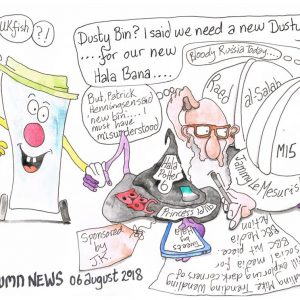 UKfish
?!
Dusty Bin? I said we need a new Dusty
....for our new
Hala Bana....
Bloody Russia Today...
But, Patrick
Henningsen said
'new bin....' I
must have
misunderstood
Raed
al-Salah
M15
Jammyle Mesuris
Hala
Potter
Princess
Sponsored
by
J.K.
Tweets
Hala
UMN NEWS 06 August 2018
Mike Trending Wendling
still exploring dark corners of
social media for
BBC
BBC Media
Action